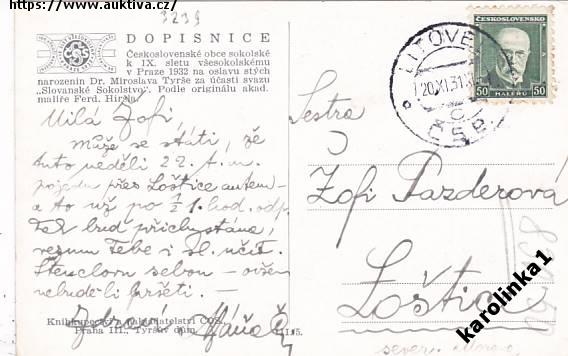 https://www.auktiva.cz/
3239
DOPISNICE
Československé obce sokolské
k IX. sletu všesokolskému
v Praze 1932 na oslavu stých
narozenin Dr. Miroslava Tyrše za účasti svazu
„Slovanské Sokolstvo". Podle originálu akad.
malíře Ferd.
Milá Žofi,
Může se státi, že
tuto neděli 22. t.m.
pojedu přes Loštice autem –
a to už po ½1. hod. odp.
tak buď přichystána,
vezmu Tebe i sl. učit.
sebou – ovšem
nebude-li pršeti. –
Máňa
Knihkupectví a nakladatelství ČOS.
Praha III., Tyršův dům
ČESKOSLOVENSKO
50 HALÉŘŮ 50
LITOVEL
20.XI.31
ČSR
Sestra
Žofi Pazderová
Loštice
sever. Morava
karolinka1